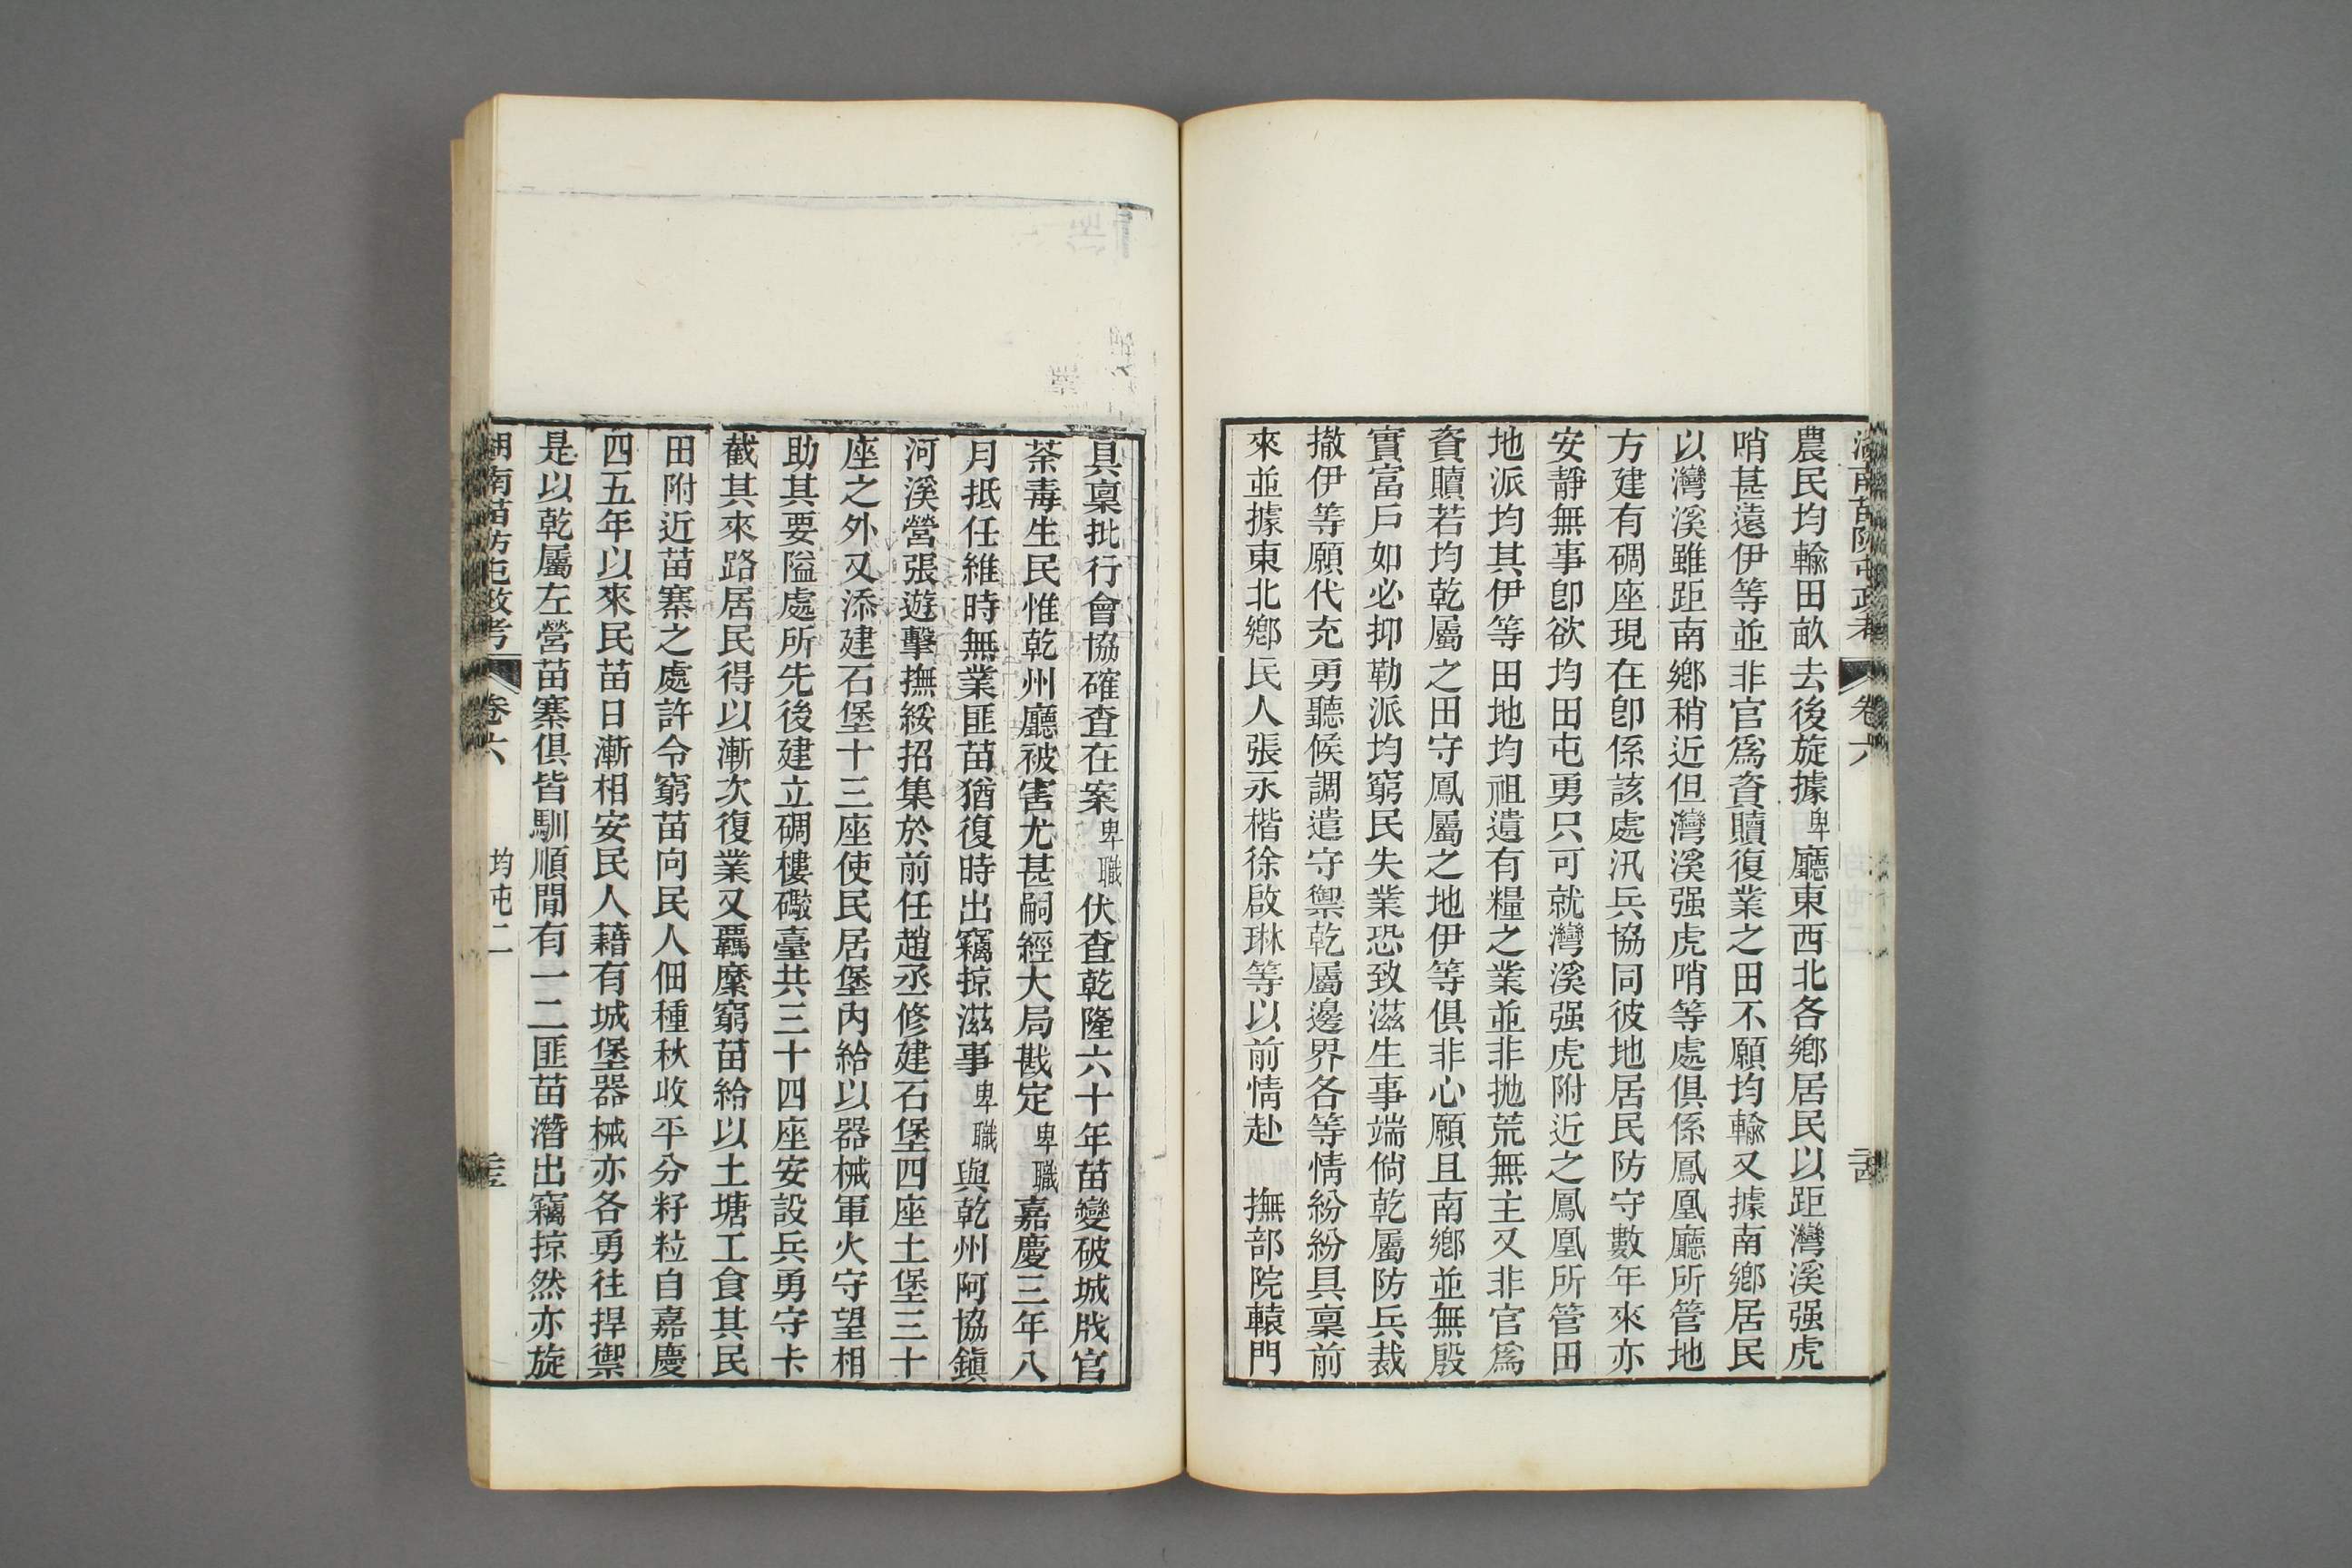 湖南苗防屯政考 卷六 二十四
農民均輸田畝去後旋據卑廳東西北各鄉居民以距灣溪强虎
哨甚遠伊等並非官爲資贖復業之田不願均輸又據南鄉居民
以灣溪雖距南鄉稍近但灣溪强虎哨等處俱係鳳凰廳所管地
方建有碉座現在卽係該處汛兵協同彼地居民防守數年來亦
安靜無事卽欲均田屯勇只可就灣溪强虎附近之鳳凰所管田
地派均其伊等田地均祖遺有糧之業並非抛荒無主又非官爲
資贖若均乾屬之田守鳳屬之地伊等俱非心願且南鄉並無殷
實富戶如必抑勒派均窮民失業恐致滋生事端倘乾屬防兵裁
撤伊等願代充勇聽候調遣守禦乾屬邊界各等情紛紛具稟前
來並據東北鄉民人張永楷徐啟琳等以前情赴 撫部院轅門
具稟批行會協確查在案卑職伏查乾隆六十年苗變破城戕官
荼毒生民惟乾州廳被害尤甚嗣經大局戡定卑職嘉慶三年八
月抵任維時無業匪苗猶復時出竊掠滋事卑職與乾州阿協鎭
河溪營張遊擊撫綏招集於前任趙丞修建石堡四座土堡三十
座之外又添建石堡十三座使民居堡內給以器械軍火守望相
助其要隘處所先後建立碉樓礮臺共三十四座安設兵勇守卡
截其來路居民得以漸次復業又羈縻窮苗給以土塘工食其民
田附近苗寨之處許令窮苗向民人佃種秋收平分籽粒自嘉慶
四五年以來民苗日漸相安民人藉有城堡器械亦各勇往捍禦
是以乾屬左營苗寨俱皆馴順間有一二匪苗潛出竊掠然亦旋
湖南苗防屯政考 卷六 均屯二 二十五